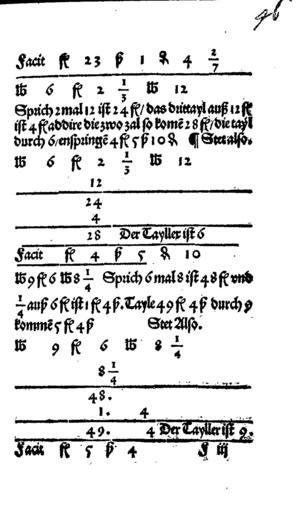 46
Facit fl 23 ß 1 ₰ 4 2/7
℔ 6 fl 2 1/3 ℔ 12
Sprich 2 mal 12 ist 24 fl / das drittayl auß 12 fl
ist 4 fl addire die zwo zal so komē 28 fl / die tayl
durch 6 / enspringē 4 fl 5 ß 10 ₰ ¶ Stet also.
℔ 6 fl 2 1/3 ℔ 12
12
24
4
28 Der Tayller ist 6
Facit fl 4 ß 5 ₰ 10
℔ 9 fl 6 ℔ 8 1/4 Sprich 6 mal 8 ist 48 fl vnd
1/4 auß 6 fl ist 1 fl 4 ß. Tayle 49 fl 4 ß durch 9
kommē 5 fl 4 ß Stet Also.
℔ 9 fl 6 ℔ 8 1/4
8 1/4
48.
1. 4
49. 4 Der Tayller ist 9.
Facit fl 5 ß 4 F iij